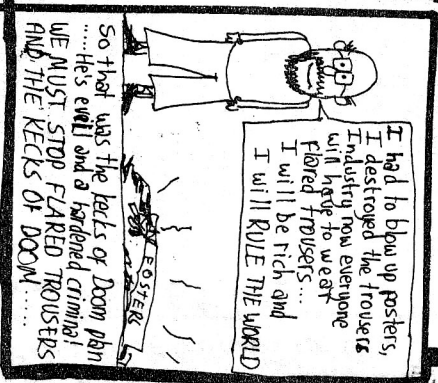 I had to blow up posters,
I destroyed the trousers
Industry now everyone
will have to wear
flared trousers...
I will be rich and
I will RULE THE WORLD
FOSTERS
So that was the kecks of Doom plan
.....He's evil and a hardened criminal
WE MUST STOP FLARED TROUSERS
AND THE KECKS OF DOOM.....